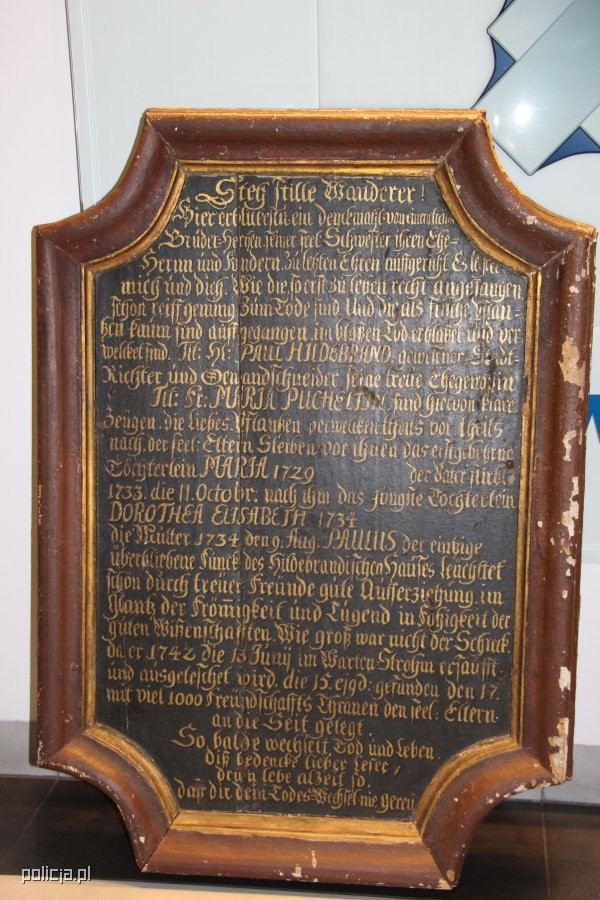 Steh stille Wanderer!
Hier erblickestu ein denckmahl von
Brüder Hertzen seiner seel. Schwester ihren Ehe-
Herrn und Kindern. Zu letzten Ehren auffgericht. Es lehret
mich und dich, Wie die so erst zu leben recht angefangen
schon reiff genung zum Tode sind Und die als frische Pflan-
tzen kaum sind auff gegangen, im blaßen Tod erblaßet und ver
welcket sind. Tit: Hr: PAUL HILDEBRAND, gewesner Stadt
Richter und Gewandschneider, seine treue Ehegenoßin
Tit: Fr: MARIA PUCHELTIN sind hiervon klare
Zeugen, die liebes Pflantzen verwelcken theils vor theils
nach der seel: Eltern Sterben, vor ihnen das erstgebohrne
Töchterlein MARIA 1729 der Vater stirbt
1733. die 11. Octobr. nach ihm das jüngste Töchterlein
DOROTHEA ELISABETH 1734
die Mutter 1734 den 9. Aug. PAULUS der eintzige
überbliebene Funck des Hildebrandischen Hauses leuchtet
schon durch treuer Freunde gute Aufferziehung im
Glantz der From̄igkeit und Tugend in Fähigkeit der
guten Wißenschafften. Wie groß war nicht der Schreck
da er 1742 die 13 Junij im Warten Strohm ersäufft
und ausgeleschet wird. die 15. ejqd: gefunden den 17.
mit viel 1000 Freundschaffts Thränen den seel: Eltern
an die Seit gelegt
So balde wechselt Tod und Leben
Diß bedencke lieber Leser,
drum lebe alzeit so
Daß dir dein Todes-Wechsel nie gereu
policja.pl